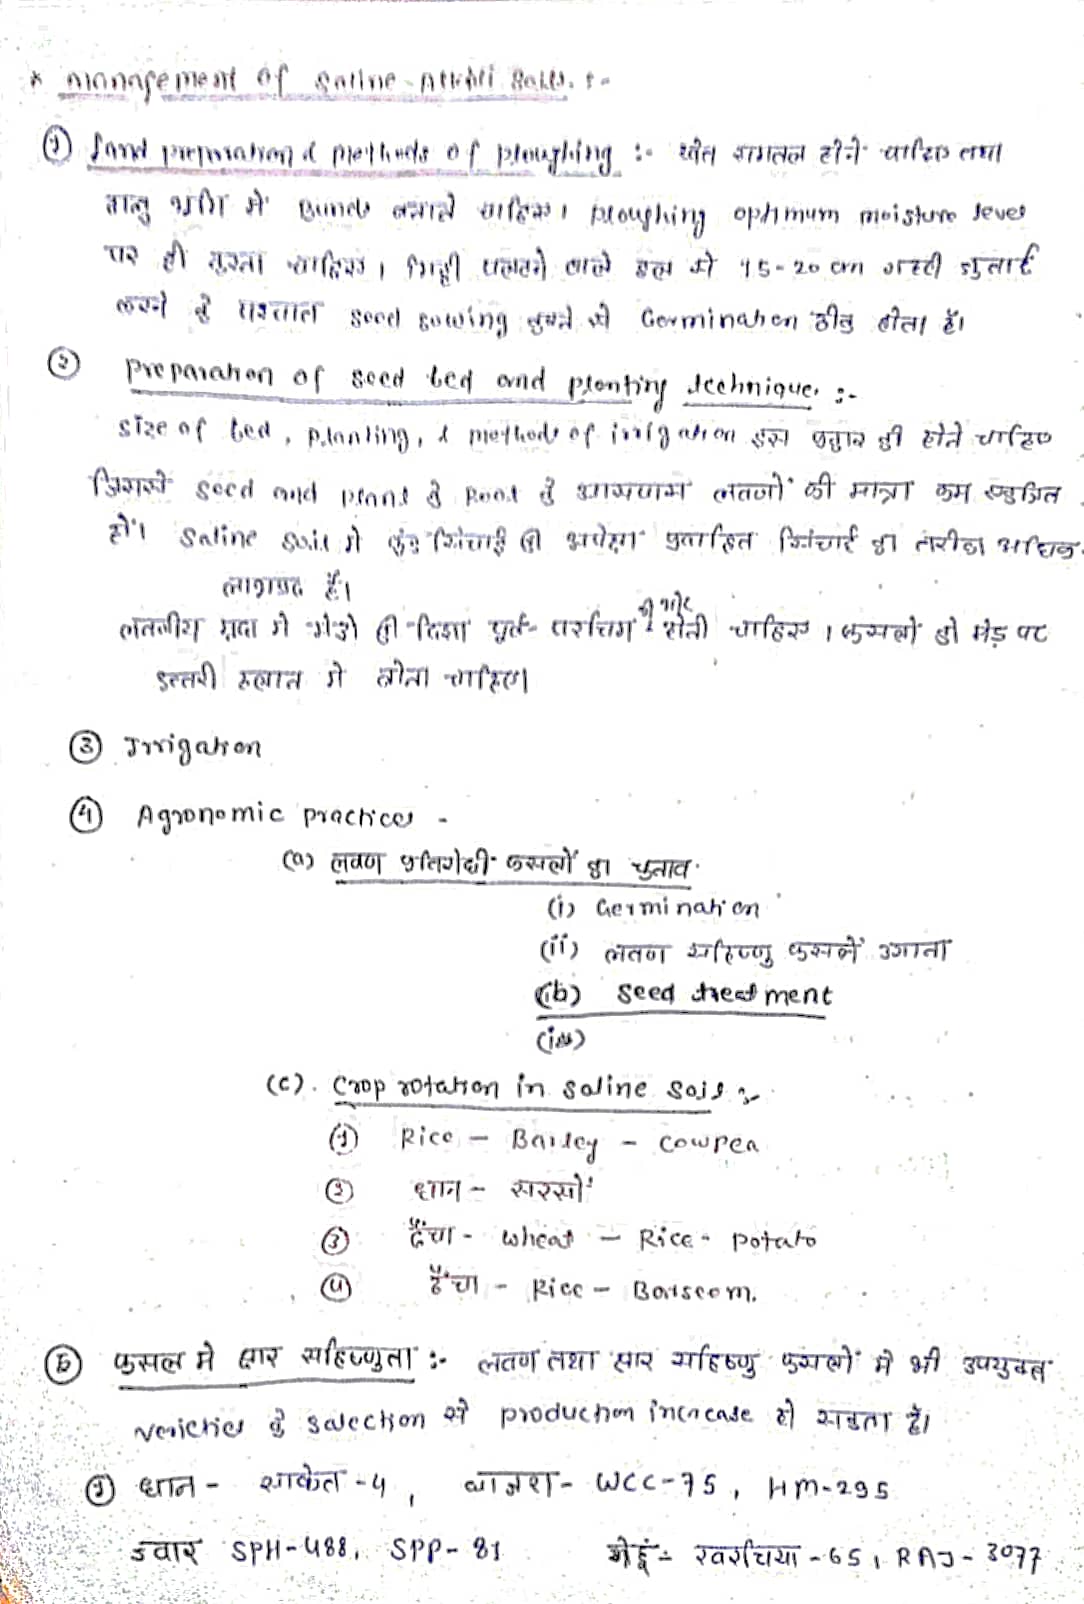 * management of saline-Alkali soils :-
① Land preparation & methods of ploughing :- खेत समतल होने चाहिए तथा
ढालु भूमि मे Bunds बनाने चाहिए। ploughing optimum moisture level
पर ही करना चाहिए। मिट्टी पलटने वाले हल से 15-20 cm गहरी जुताई
करने के पश्चात seed sowing करने से Germination ठीक होता है।
② preparation of seed bed and planting technique :-
size of bed, planting, & methods of irrigation इस प्रकार की होने चाहिए
जिससे seed and plant के Root के आसपास लवणों की मात्रा कम एकत्रित
हो। saline soil मे कुंड सिंचाई की अपेक्षा प्रवाहित सिंचाई का तरीका अधिक
लाभप्रद है।
लवणीय मृदा मे मेडो की दिशा पूर्व- पश्चिम की ओर होनी चाहिए। फसलों को मेड़ पर
उत्तरी ढलान मे बोना चाहिए।
③ Irrigation
④ Agronomic practices -
(a) लवण प्रतिरोधी फसलों का चुनाव
(i) Germination
(ii) लवण सहिष्णु फसलें उगाना
(b) seed treatment
(c). crop rotation in saline soil :-
① Rice - Barley - cowpea
② धान - सरसों
③ ढैंचा - wheat - Rice - potato
④ ढैंचा - Rice - Barseem.
⑤ फसल मे क्षार सहिष्णुता :- लवण तथा क्षार सहिष्णु फसलों मे भी उपयुक्त
verieties के selection से production increase हो सकता है।
① धान - साकेत -4, बाजरा - WCC-75, HM-295
ज्वार SPH-488, SPP-81 गेहूं - खरचिया -65, RAJ-3077